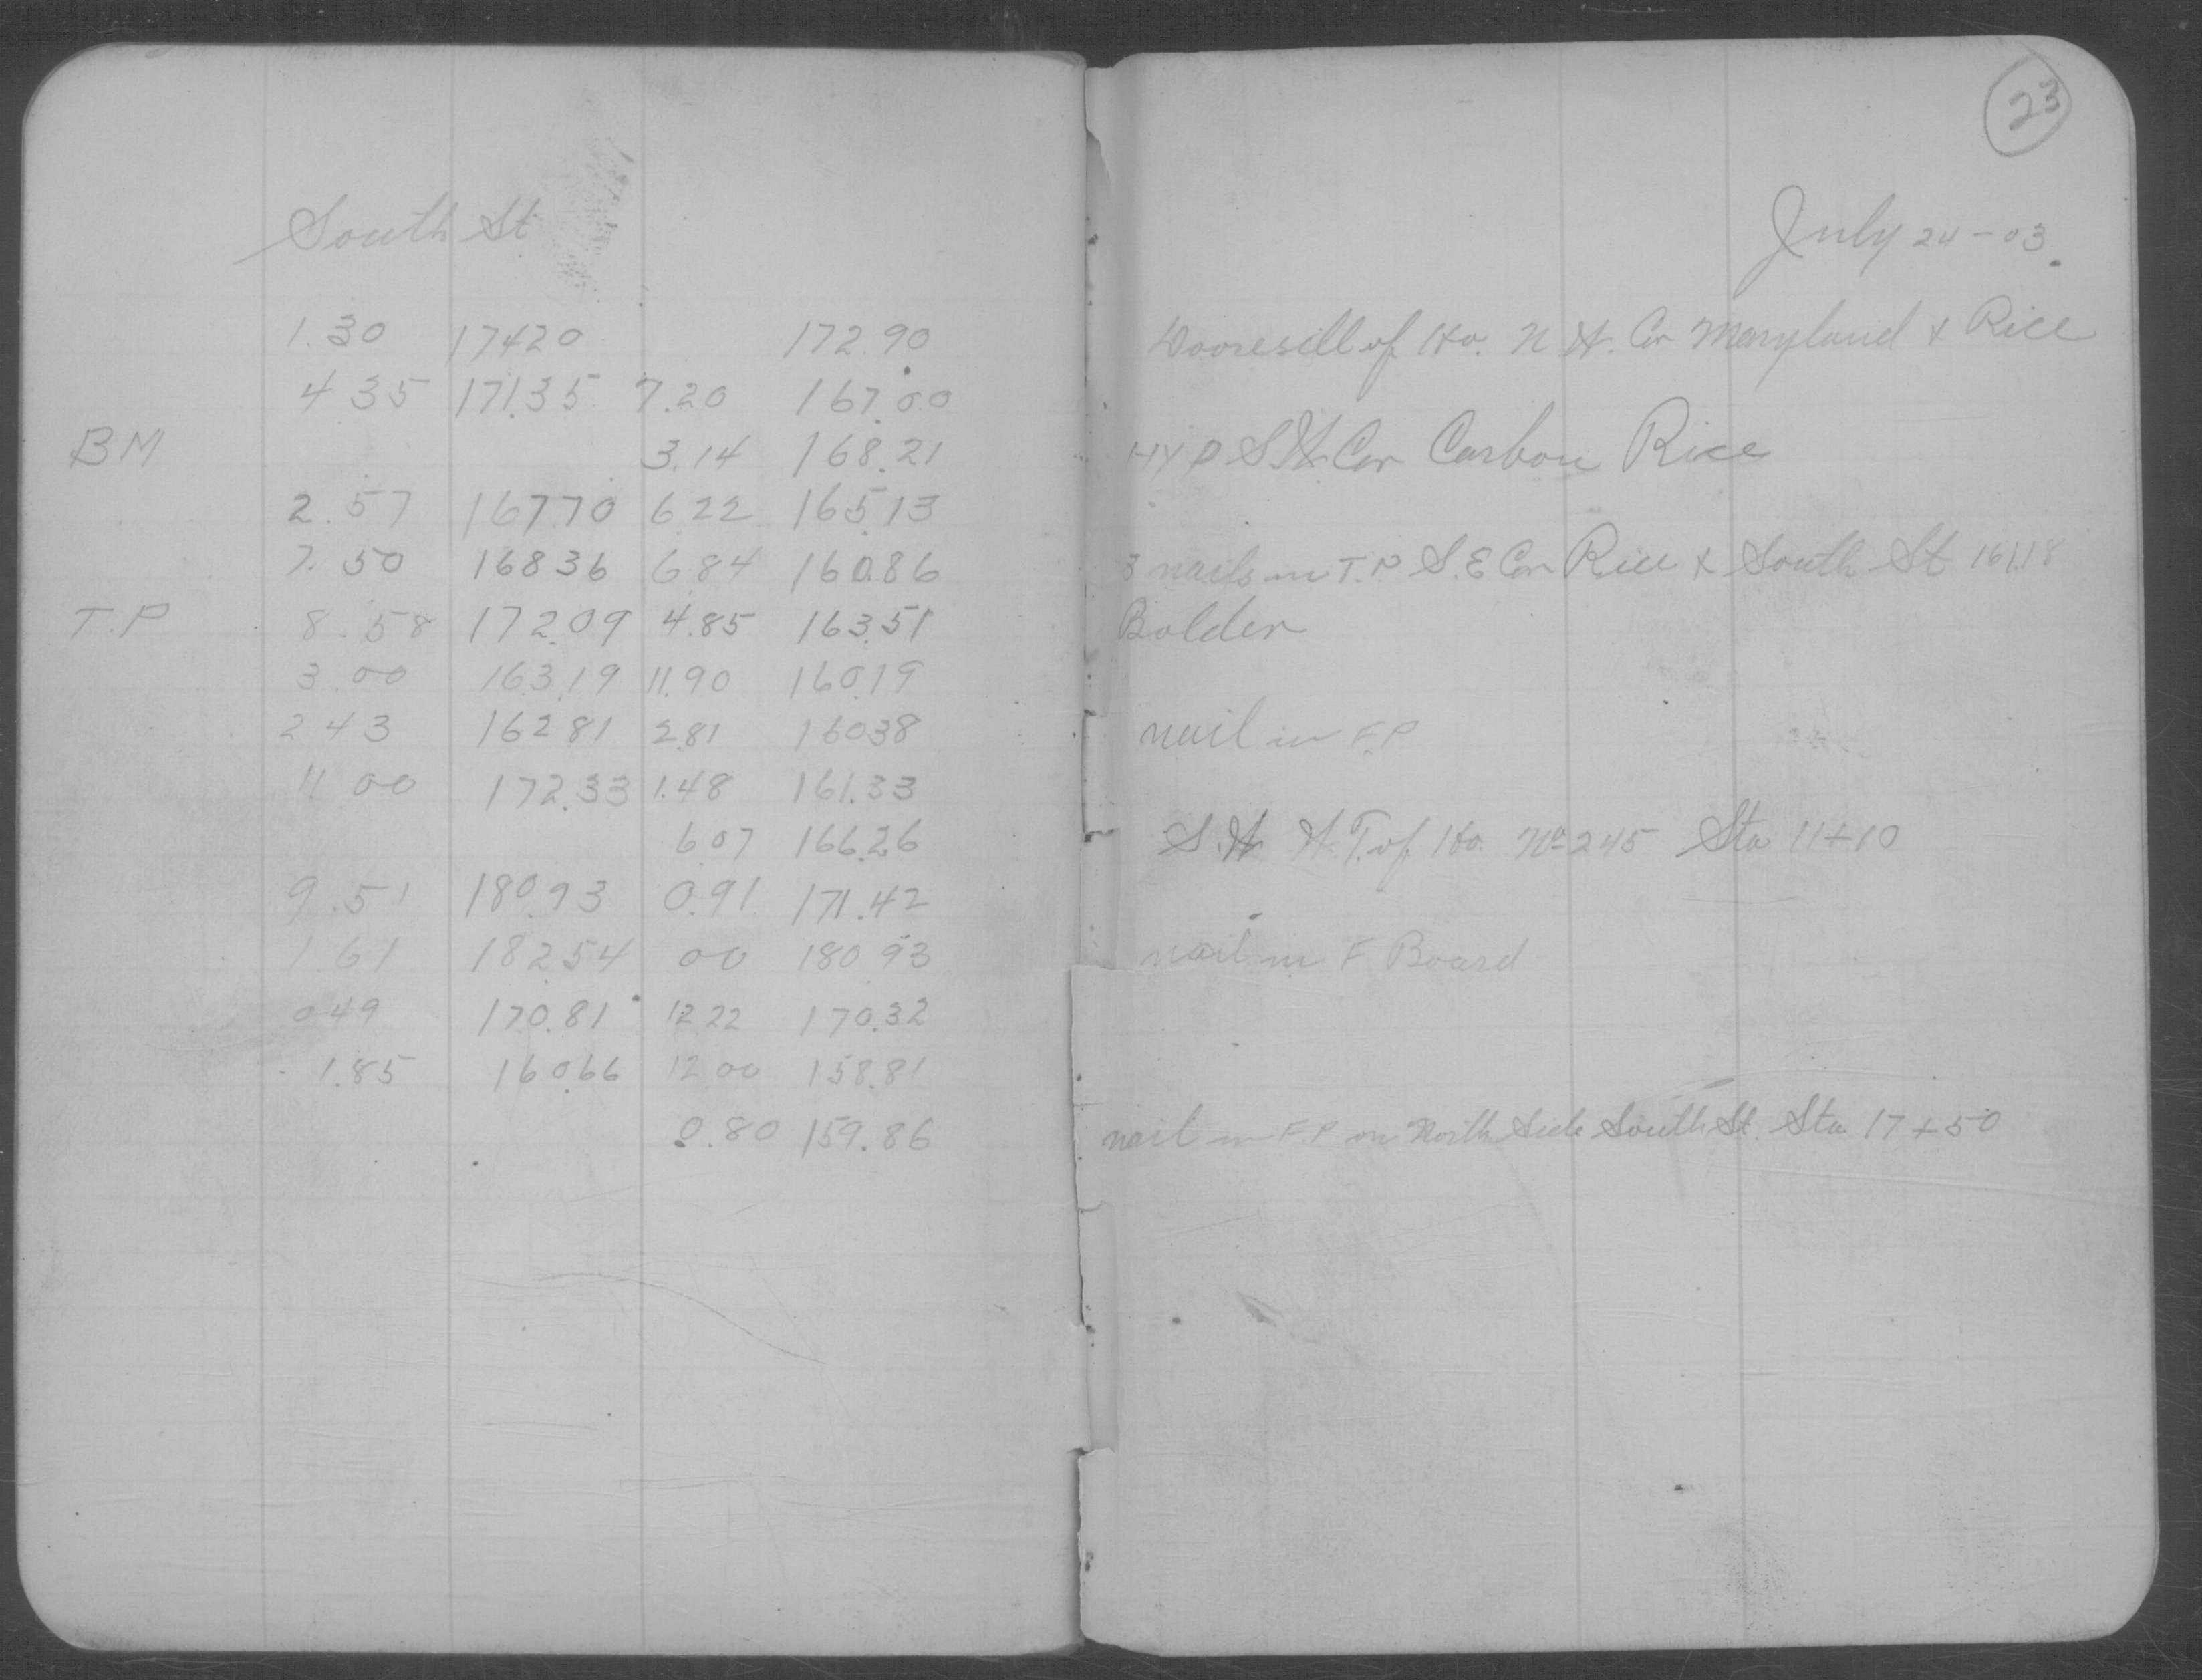 23
South St
July 24-03.
1.30 174.20 172.90 Doorsill of Ho. N.W. Cor Maryland & Rice
4 35 171.35 7.20 167.00
BM 3.14 168.21 HYD S.W. Cor Carbon Rice
2.57 167.70 6.22 165.13
7.50 168.36 6.84 160.86 3 nails in T.P S.E Cor Rice & South St 161.18
T.P 8.58 172.09 4.85 163.51 Bolder
3.00 163.19 11.90 160.19
2 43 162.81 2.81 160.38 nail in F.P
11 00 172.33 1.48 161.33
6.07 166.26 S.W. W.T. of Ho. No 245 Sta 11+10
9.51 180.93 0.91 171.42
1 61 182.54 00 180.93 nail in F Board
0.49 170.81 12.22 170.32
1.85 160.66 12.00 158.81
0.80 159.86 nail in F.P on North Side South St. Sta 17+50